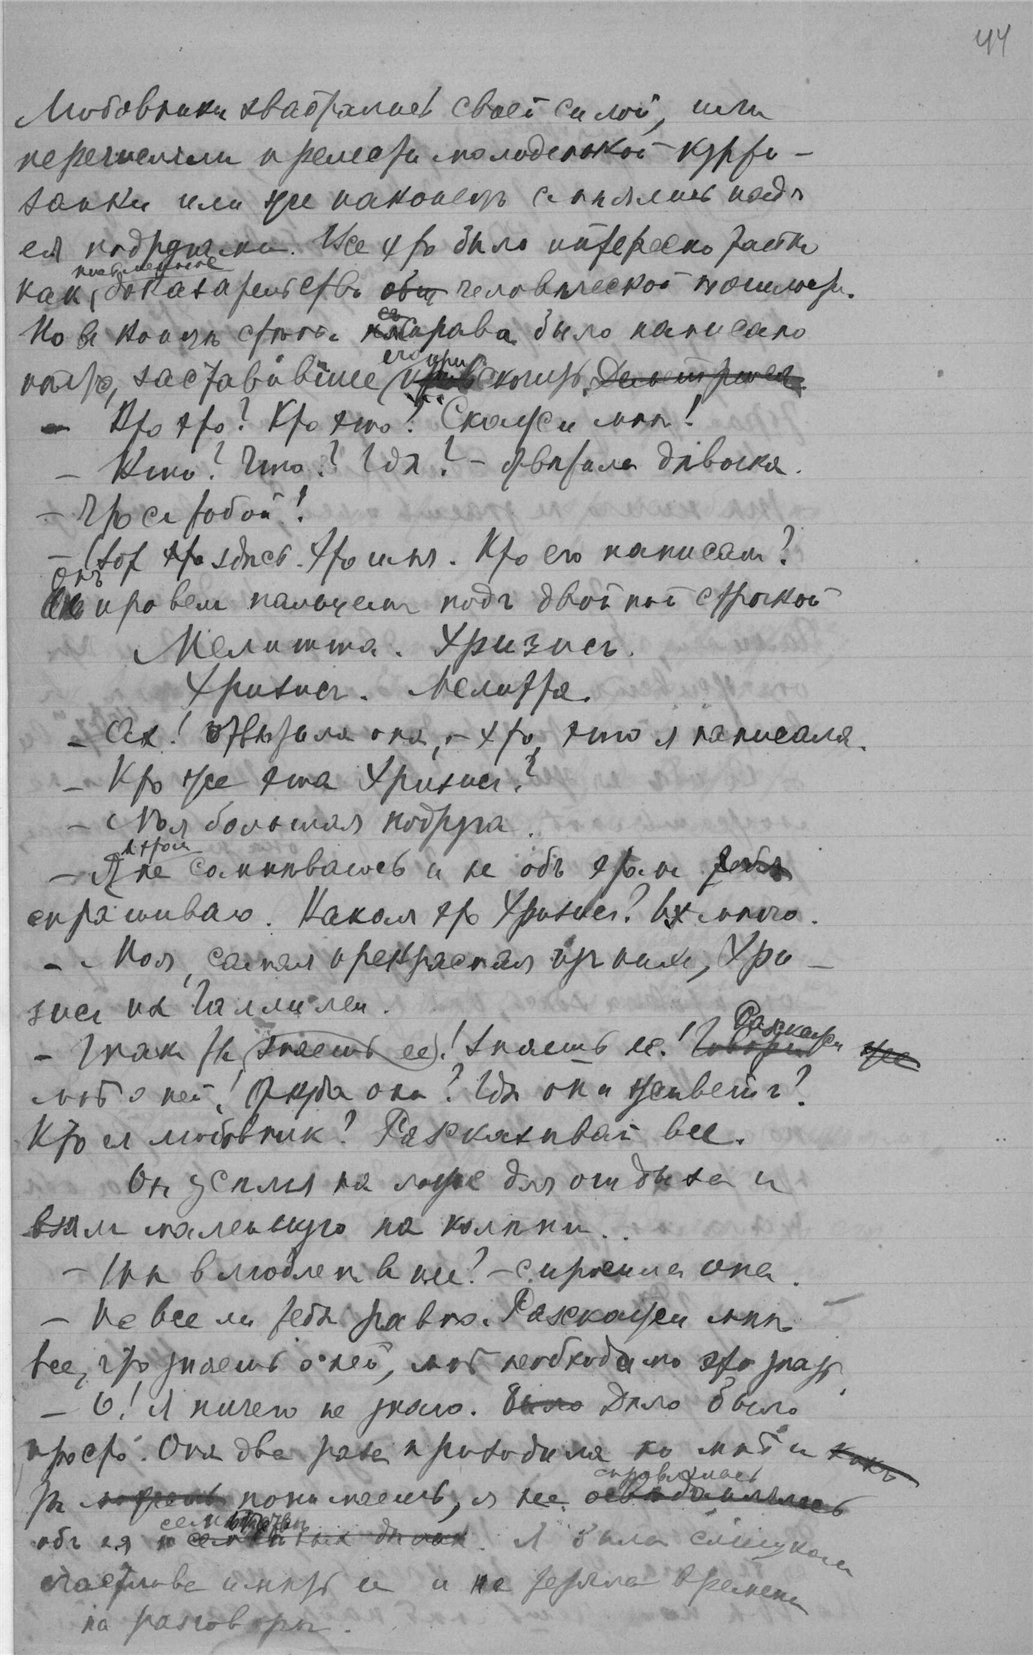 44
Любовники хвастались своей силой, или
перечисляли прелести молоденькой курти-
занки или же наконецъ смѣялись надъ
ея подругами. Все это было интересно
какъ письменное доказательство общ человѣческой пошлости.
Но въ концѣ стѣны справа было написано
нѣчто, заставившее его при
— Кто это? Кто это? Скажи мнѣ!
— Кто? Что? Гдѣ? — отвѣтила дѣвочка.
— Что съ тобой!
— Вотъ здѣсь. Это имя. Кто его написалъ?
Онъ провелъ пальцемъ подъ двойной строкой
Мелитта. Хризисъ.
Хризисъ. Мелитта.
— Ах! отвѣтила она, — это, это я написала.
— Кто же эта Хризисъ?
— Моя большая подруга.
— Я въ этомъ не сомнѣваюсь и не объ этомъ тебя
спрашиваю. Какая это Хризисъ? Их много.
— Моя, самая прекрасная изъ нихъ, Хри-
зисъ из Галлилеи.
— Такъ ты знаешь ее! знаешь ее! Говори Разскажи же
мнѣ о ней! Откуда она? Гдѣ она живетъ?
Кто ея любовникъ? Разсказывай все.
Он усѣлся на ложе для отдыха и
взялъ маленькую на колѣни..
— Ты влюбленъ в нее? — спросила она.
— Не все ли тебѣ равно. Разскажи мнѣ
все, что знаешь о ней, мнѣ необходимо это знать
— О! Я ничего не знаю. Было Дѣло было
просто. Она два раза приходила ко мнѣ и какъ
ты можешь понимаешь, я не справлялась освѣдомлялась
объ ея семейныхъ дѣлахъ. Я была слишкомъ
счастлива имѣть ее и не теряла времени
на разговоры.